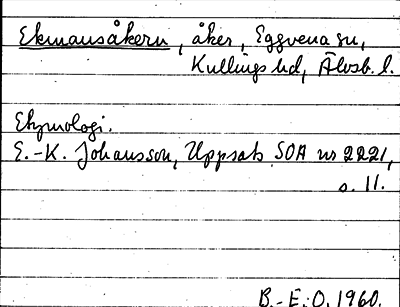 Ekmansåkern, åker, Eggvena sn,
Kullings hd, Älvsb. l.
Etymologi.
E.-K. Johansson, Uppsats SOA nr 2221,
s. 11.
B.-E. O. 1960.